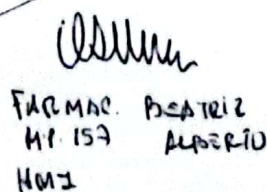 FARMAC. BEATRIZ
MP. 157 ALBERTO
HMI